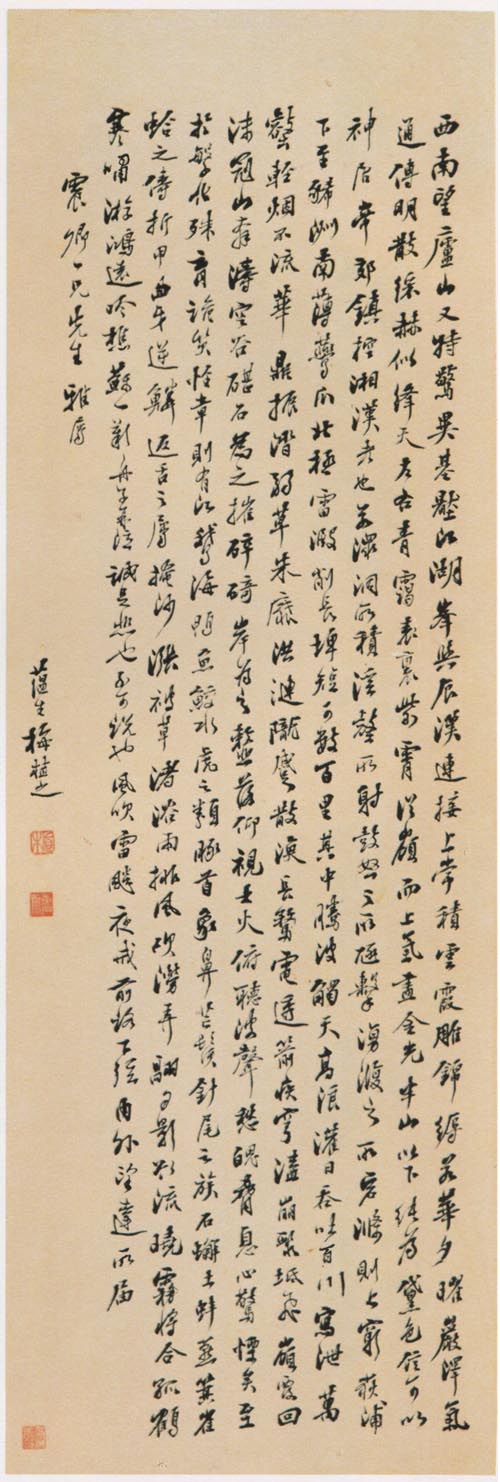 西南望廬山又特驚異基壓江潮峯與辰漢連接上常積雲霞雕錦縟若華夕曜巖澤氣
通傳明散綵赫似絳天左右青靄表裏紫霄從嶺而上氣盡金光半山以下純為黛色信可以
神居帝郊鎮控湘漢者也若潀洞所積溪壑所射鼓怒之所豗擊湧澓之所宕滌則上窮荻浦
下至狶洲南薄鷰爪北極雷澱削長埤短可數百里其中騰波觸天高浪灌日吞吐百川寫泄萬
壑輕烟不流華鼎振涾弱草朱靡洪漣隴蹙散渙長驚電透箭疾穹溘崩聚坻飛嶺覆回
沫冠山奔濤空谷碪石為之摧碎碕岸為之䪡落仰視大火俯聽波聲愁魄脅息心驚慓矣至
於繁化殊育詭質怪章則有江鵝海鴨魚鮫水虎之類豚首象鼻芒鬚針尾之族石蟹土蚌燕箕雀
蛤之儔折甲曲牙逆鱗返舌之屬掩沙漲被草渚浴雨排風吹澇弄翮夕景欲流曉霧將合孤鶴
寒嘯游鴻遠吟樵蘇一歎舟子再泣誠足悲也不可說也風吹雷飈夜戒前路下弦內外望達所屆
震卿一兄先生 雅屬
蘊生梅植之